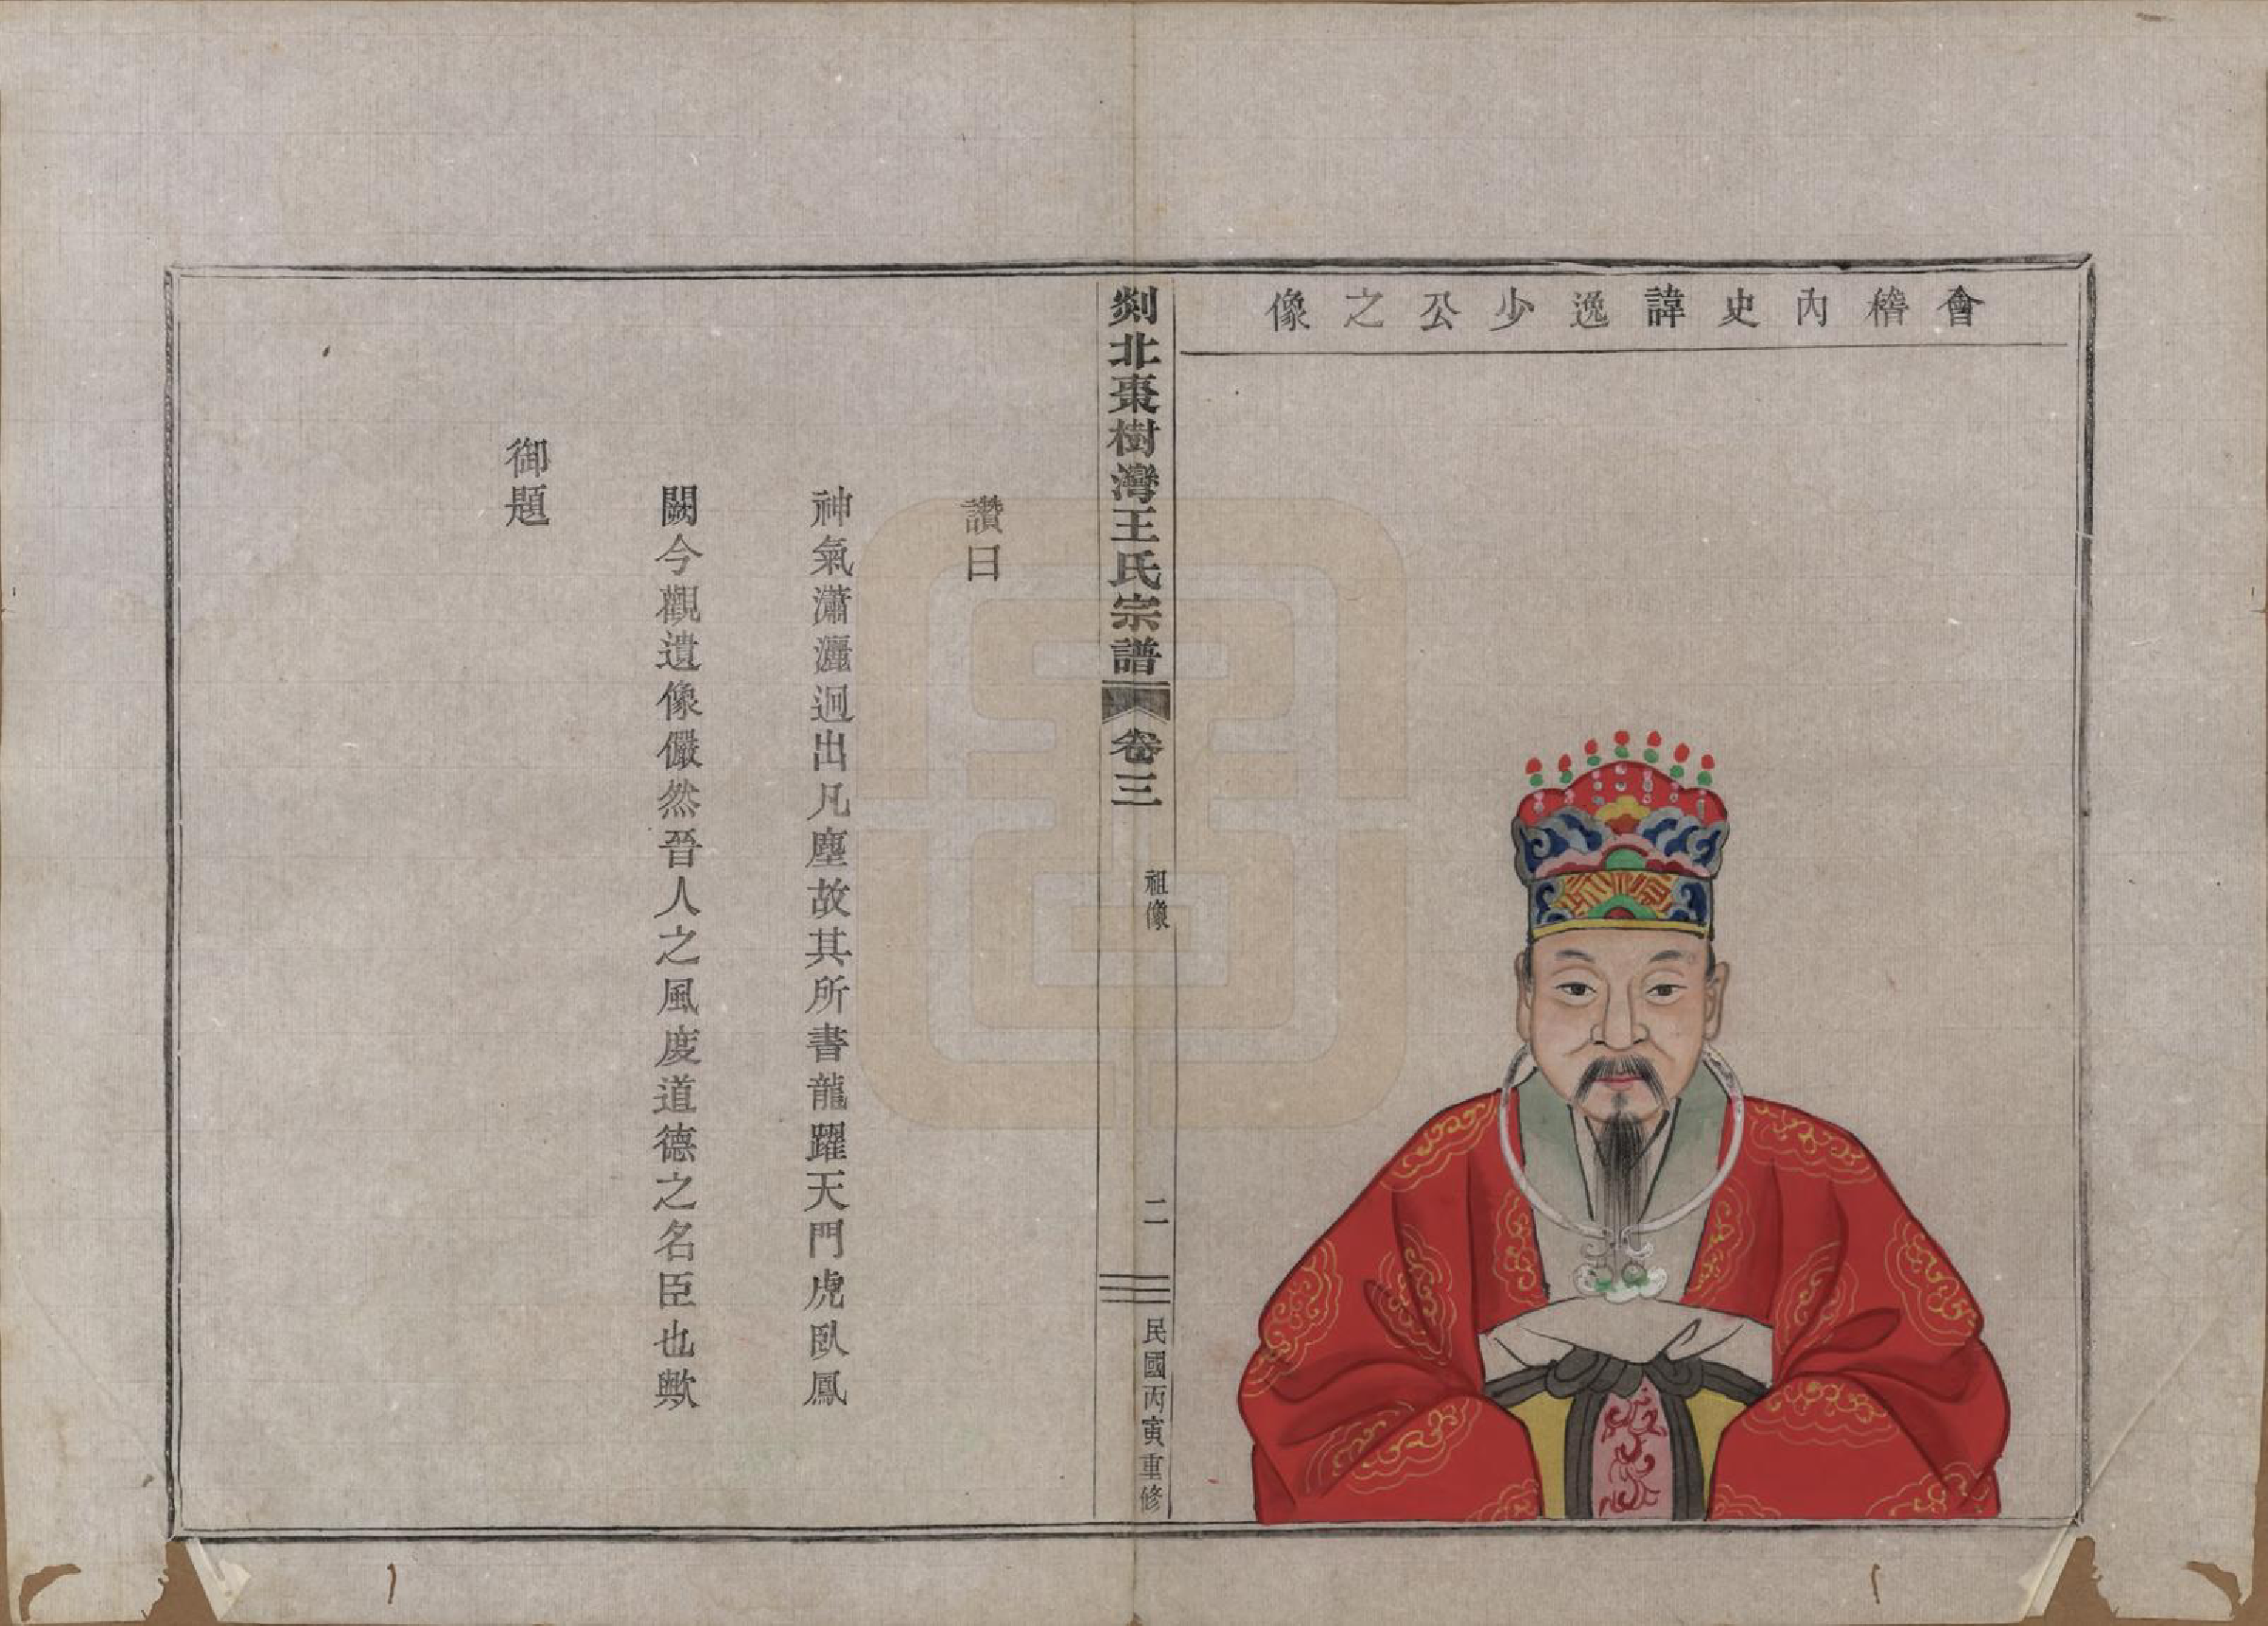 會稽內史諱逸少公之像
剡北棗樹灣王氏宗譜
卷三
祖像
二
民國丙寅重修
讚曰
神氣瀟灑迥出凡塵故其所書龍躍天門虎臥鳳
闕今觀遺像儼然晉人之風度道德之名臣也歟
御題